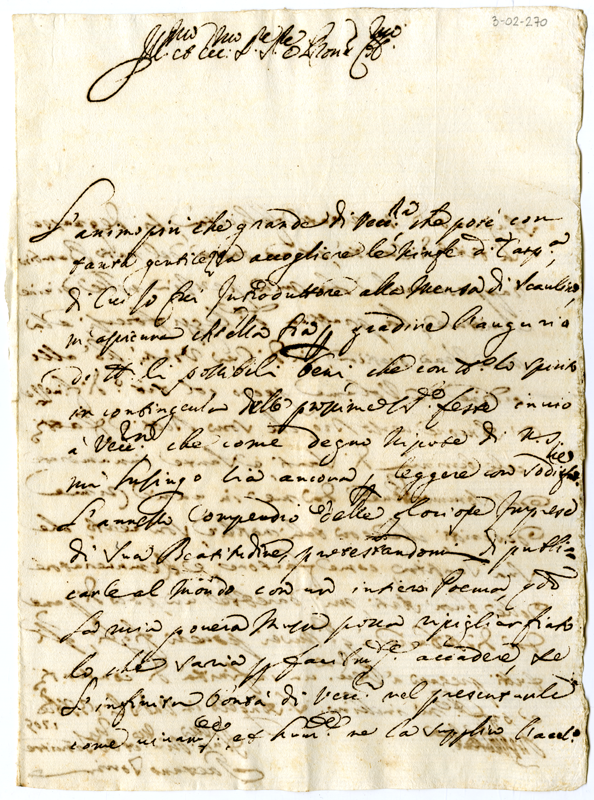 3-02-270
Ill.mo et Ecc. S.r e Pron Col.mo
L'animo più che grande di Vecc.za che poté con
tanta gentilezza accogliere le ninfe di
di cui io fui Introduttore alla Mensa di
m'assicura ch'ella sia p gradire l'augurio
di tt.i li possibili beni, che con tt.o lo spirito
in contingenza delle prossime S.te feste invio
à Vecc.za che come degno Nipote di N. S.re
mi lusingo sia ancora p leggere con
L'annesso Compendio delle gloriose Imprese
di Sua Beatitudine, protestandomi di publi=
carle al Mondo con un intiero Poema, q.do
la mia povera Musa possa ripigliar fiato
lo che saria p facilm.te accadere, se
L'infinita bontà di Vecc.za nel presentarle
come vivam.te, et hum.te ne la supplico